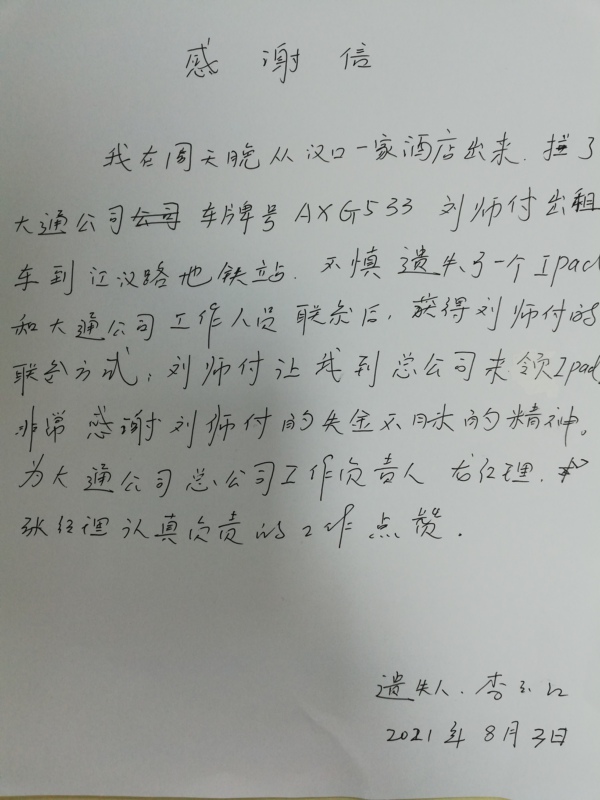 感谢信
我在周天晚从汉口一家酒店出来.搓了
大通公司公司车牌号AXG533 刘师付出租
车到江汉路地铁站.不慎遗失了一个Ipad
和大通公司工作人员联系后,获得刘师付的
联系方式,刘师付让我到总公司来领Ipad,
非常感谢刘师付的失金不昧的精神。
为大通公司总公司工作负责人龙经理.
张经理认真负责的工作点赞.
遗失人.李
2021年8月3日